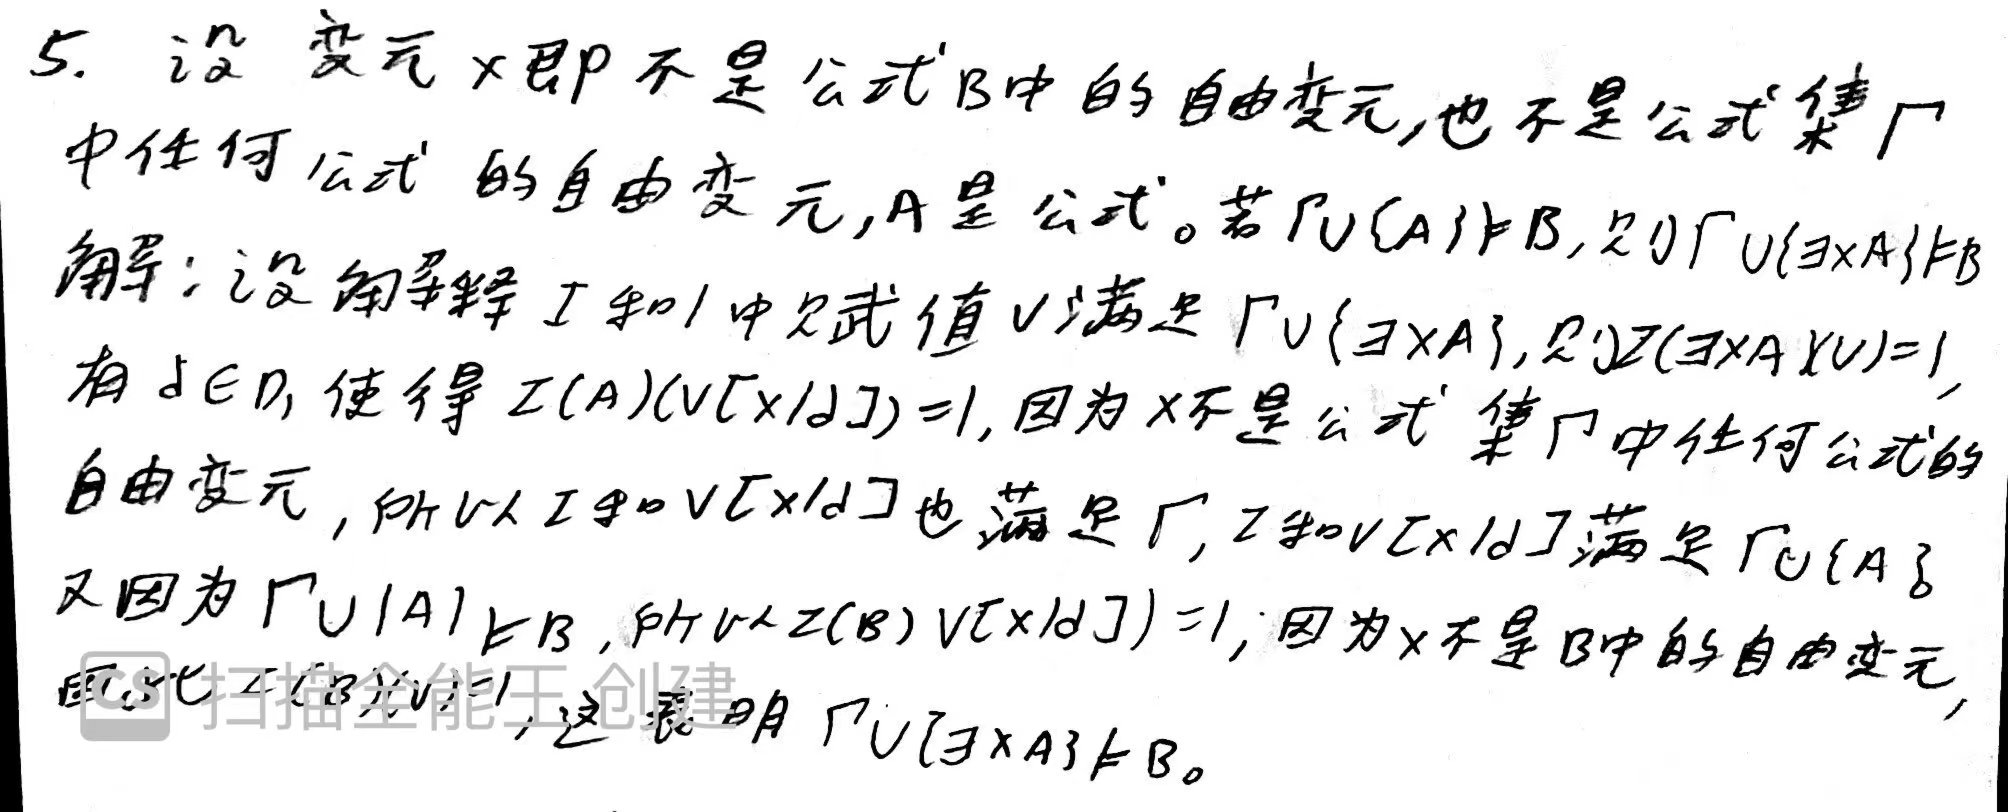 5. 设变元x即不是公式B中的自由变元,也不是公式集Γ
中任何公式的自由变元,A是公式。若Γ∪{A}⊨B,则Γ∪{∃xA}⊨B
解:设解释I和I中赋值v满足Γ∪{∃xA},则I(∃xA)(v)=1,
有d∈D,使得I(A)(v[x/d])=1,因为x不是公式集Γ中任何公式的
自由变元,所以I和v[x/d]也满足Γ,I和v[x/d]满足Γ∪{A}
又因为Γ∪{A}⊨B,所以I(B)v[x/d])=1,因为x不是B中的自由变元,
因此I(B)(v)=1,这表明Γ∪{∃xA}⊨B。
CS 扫描全能王 创建